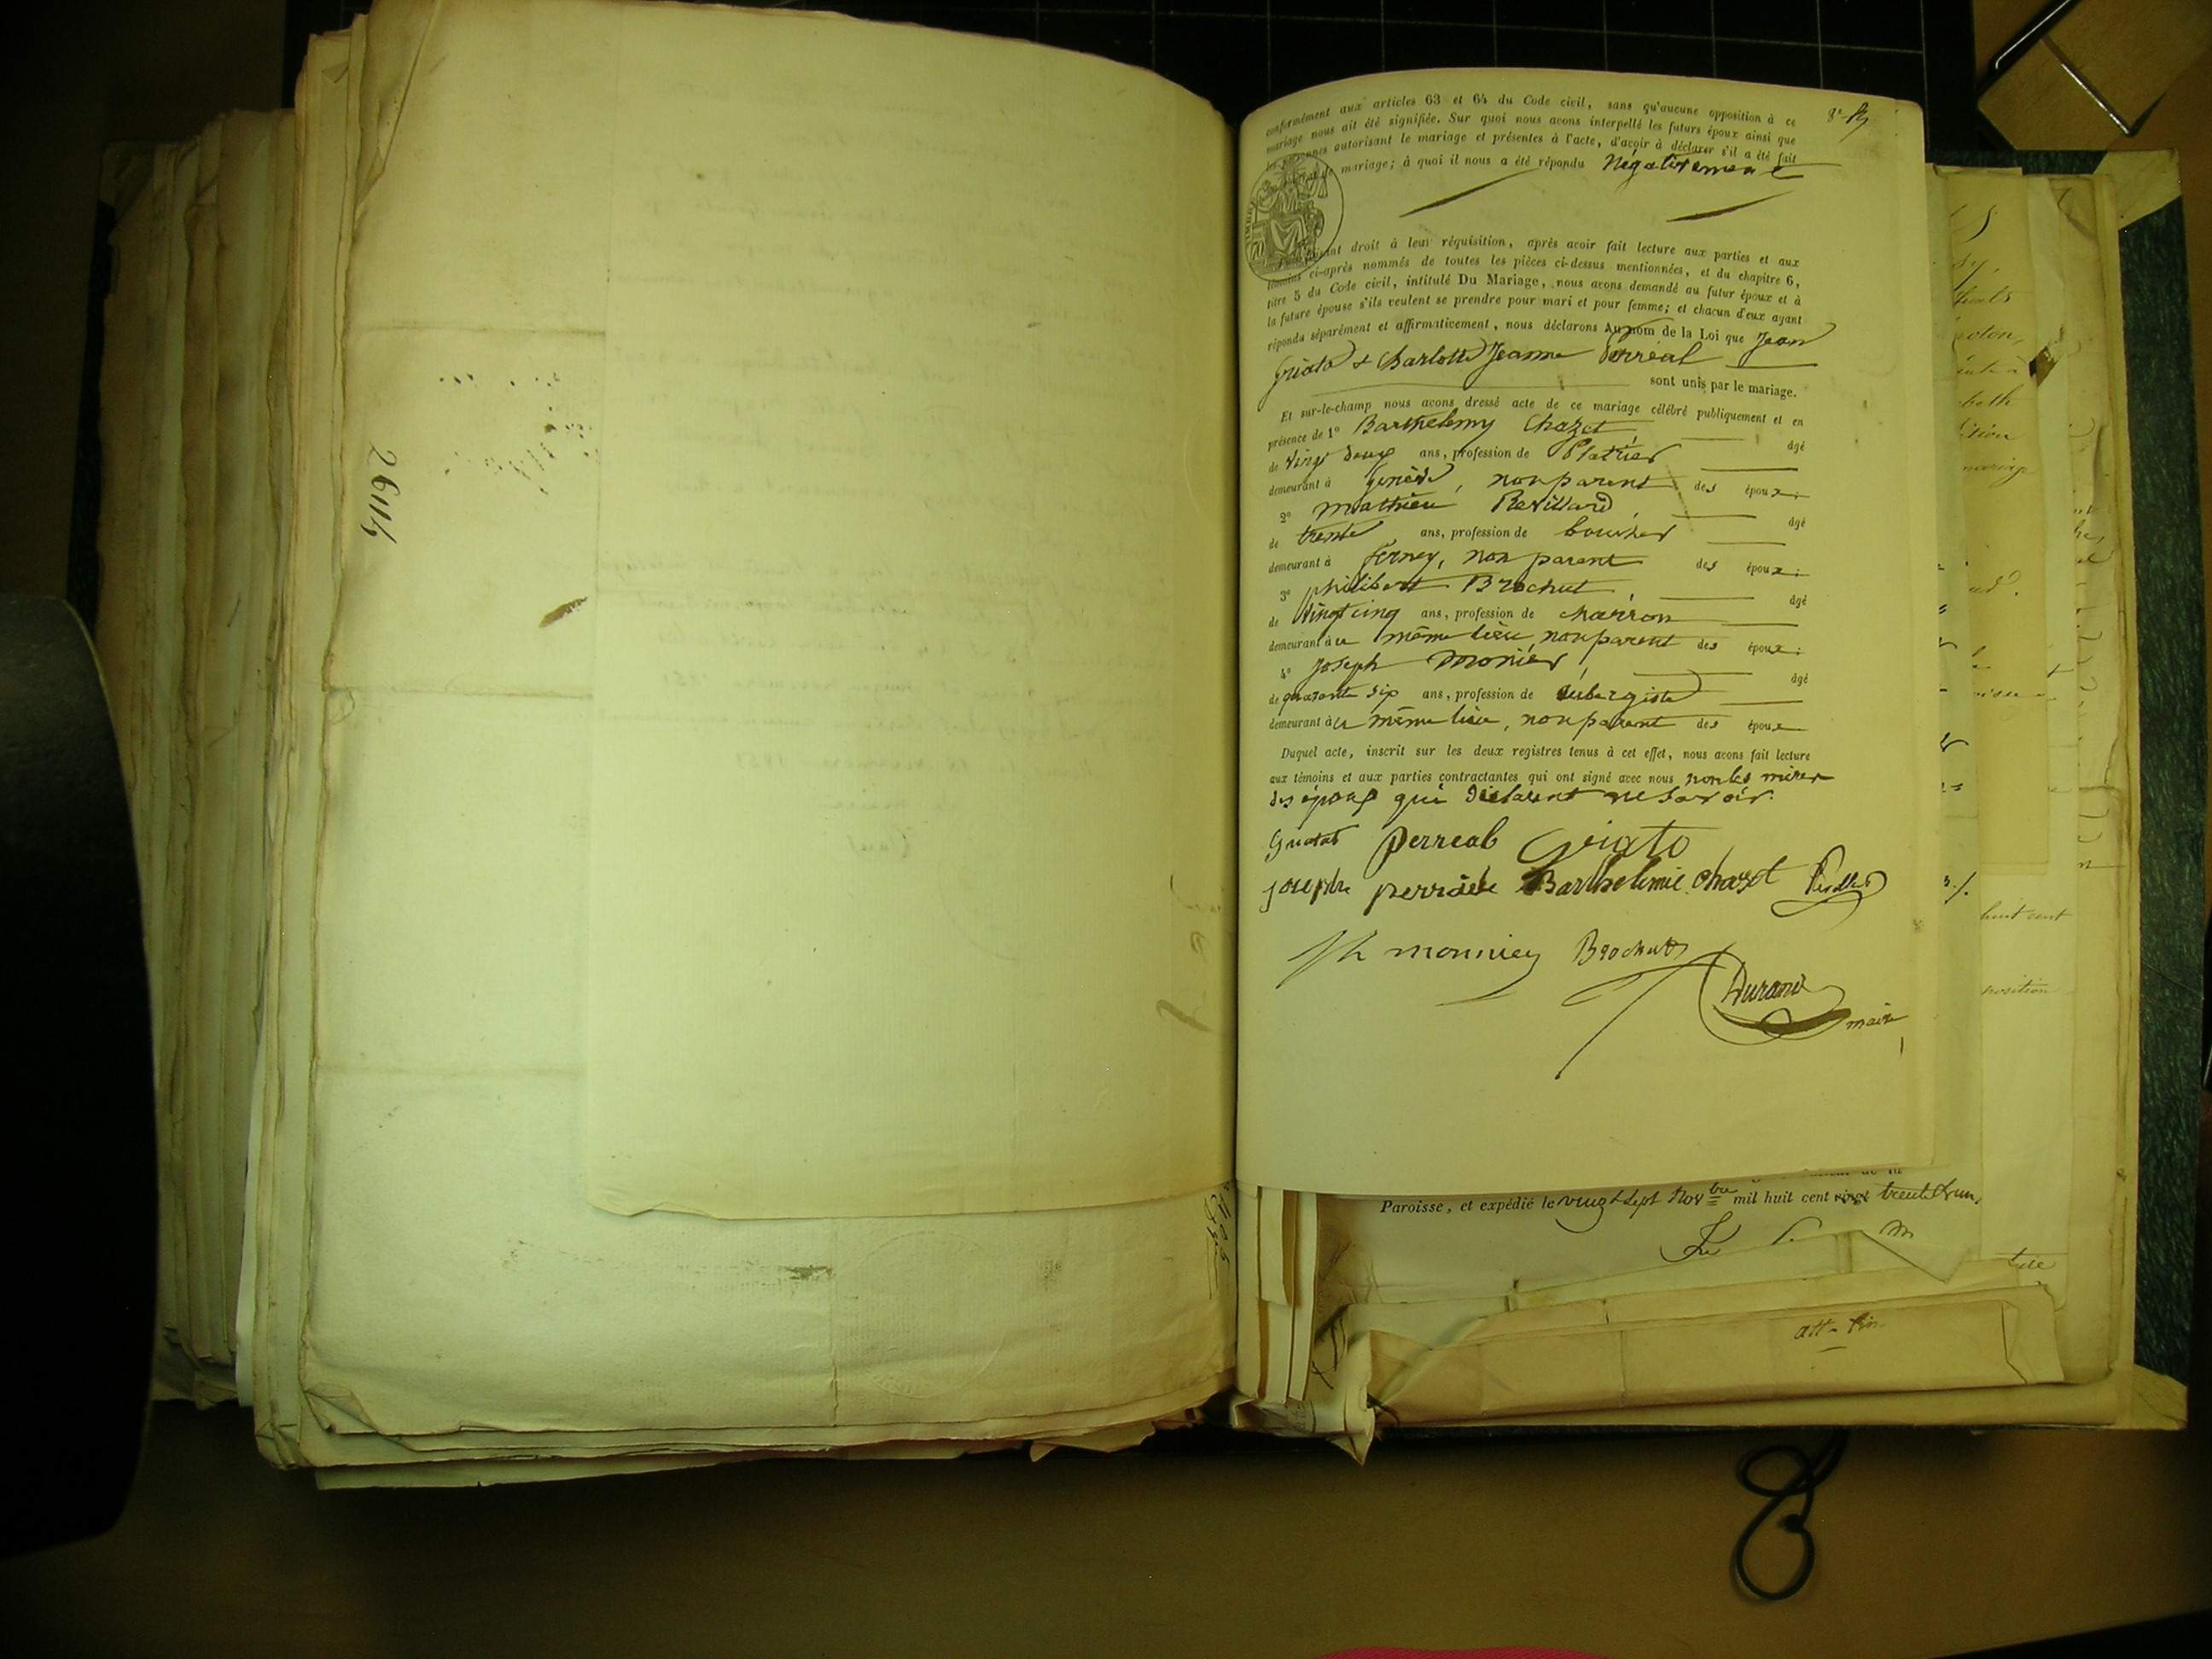 26114
conformément aux articles 63 et 64 du Code civil, sans qu'aucune opposition à ce
mariage nous ait été signifiée. Sur quoi nous avons interpellé les futurs époux ainsi que
les personnes autorisant le mariage et présentes à l'acte, d'avoir à déclarer s'il a été fait
de mariage; à quoi il nous a été répondu Négativement
faisant droit à leur réquisition, après avoir fait lecture aux parties et aux
témoins ci-après nommés de toutes les pièces ci-dessus mentionnées, et du chapitre 6,
titre 5 du Code civil, intitulé Du Mariage, nous avons demandé au futur époux et à
la future épouse s'ils veulent se prendre pour mari et pour femme; et chacun d'eux ayant
répondu séparément et affirmativement, nous déclarons Au nom de la Loi que Jean
Griato & Charlotte Jeanne Perréal
sont unis par le mariage.
Et sur-le-champ nous avons dressé acte de ce mariage célébré publiquement et en
présence de 1° Barthelemy Chazet âgé
de vingt deux ans, profession de Platrier
demeurant à Genève, non parent des époux;
2° Mathieu Revillard, âgé
de trente ans, profession de boucher
demeurant à Ferney, non parent des époux;
3° philibert Brochut, âgé
de Vingt cinq ans, profession de charron
demeurant à ce même lieu, non parent des époux;
4° Joseph Monier, âgé
de quarante six ans, profession de aubergiste
demeurant à ce même lieu, non parent des époux
Duquel acte, inscrit sur les deux registres tenus à cet effet, nous avons fait lecture
aux témoins et aux parties contractantes qui ont signé avec nous non les mères
des époux qui déclarent ne savoir.
perreal Griato
joseph Barthelemie chazet
monnier Brochut
Durand
maire
Paroisse, et expédié le vingt sept Nov.bre mil huit cent vingt trente & un,
huit cent
position